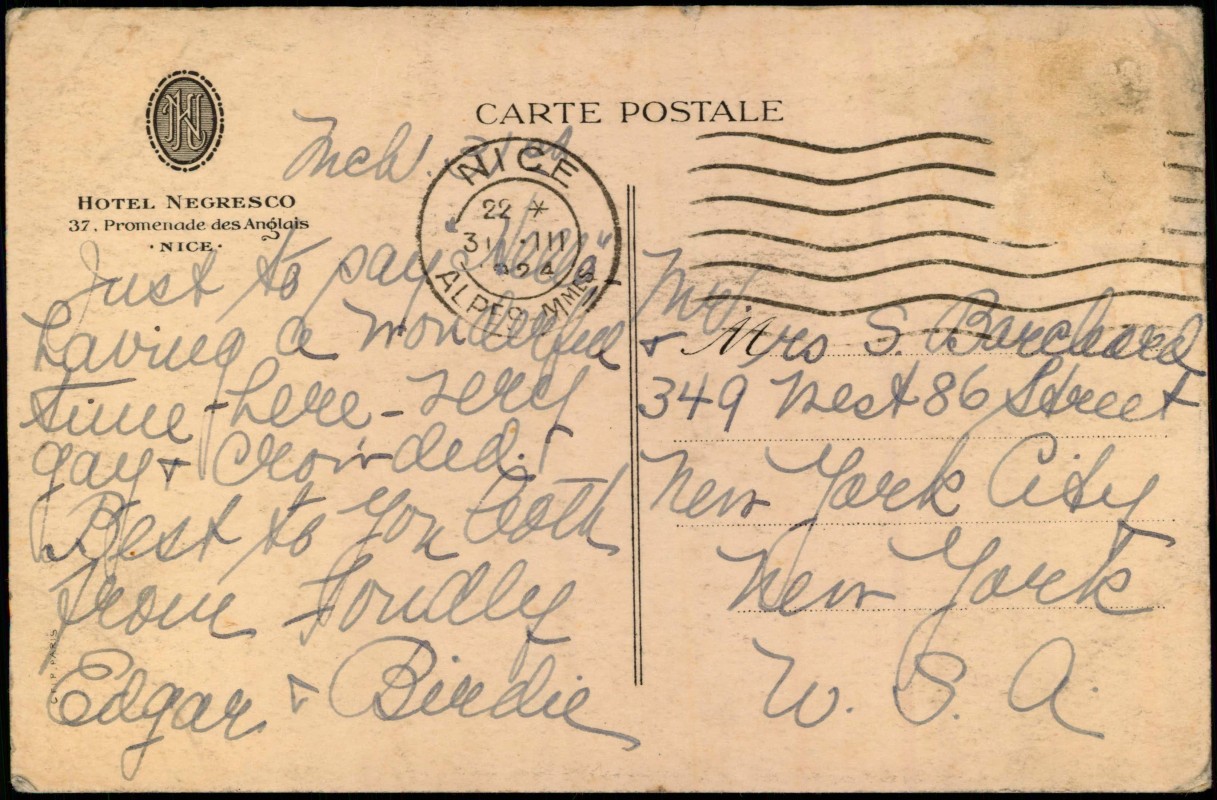 CARTE POSTALE
HOTEL NEGRESCO
37, Promenade des Anglais
·NICE·
NICE
22 *
31 ·III
1924
ALPES MMES
Mch. 31st
Just to say "Hello"
Having a wonderful
time here - very
gay & crowded.
Best to you both
from Fondly
Edgar & Birdie
Mr
& Mrs S. Borchard
349 West 86 Street
New York City
New York
U. S. A.
PARIS